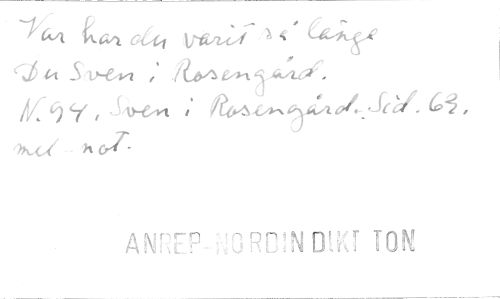 Var har du varit så länge
Du Sven i Rosengård.
N. 94. Sven i Rosengård. Sid. 69.
mel. not.
ANREP-NORDIN DIKT TON